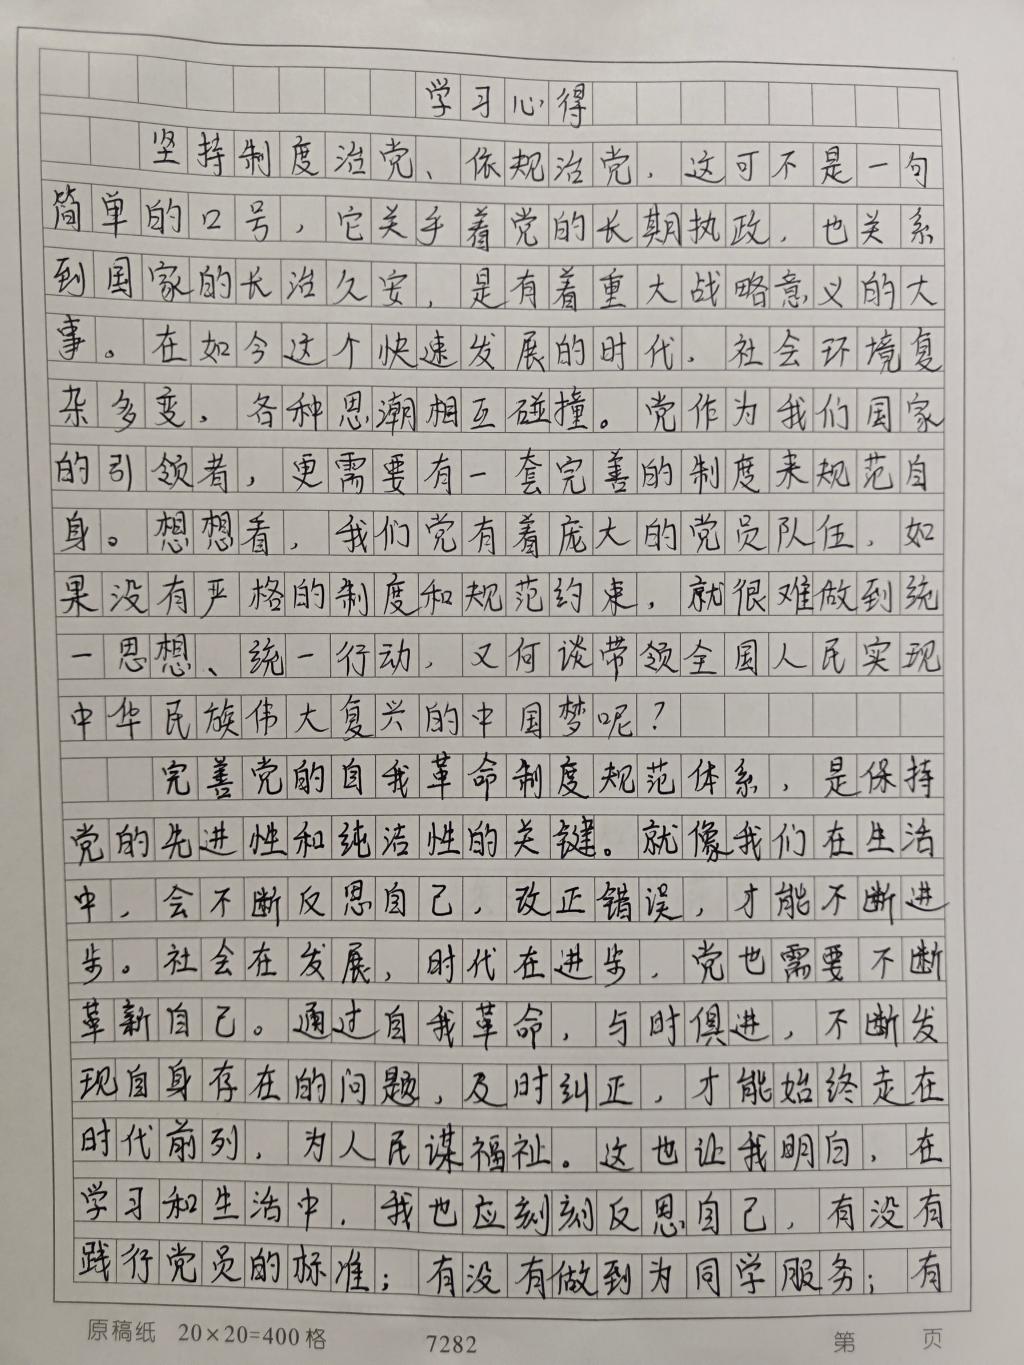 学习心得
坚持制度治党、依规治党，这可不是一句
简单的口号，它关乎着党的长期执政，也关系
到国家的长治久安，是有着重大战略意义的大
事。在如今这个快速发展的时代，社会环境复
杂多变，各种思潮相互碰撞。党作为我们国家
的引领者，更需要有一套完善的制度来规范自
身。想想看，我们党有着庞大的党员队伍，如
果没有严格的制度和规范约束，就很难做到统
一思想、统一行动，又何谈带领全国人民实现
中华民族伟大复兴的中国梦呢？
完善党的自我革命制度规范体系，是保持
党的先进性和纯洁性的关键。就像我们在生活
中，会不断反思自己，改正错误，才能不断进
步。社会在发展，时代在进步，党也需要不断
革新自己。通过自我革命，与时俱进，不断发
现自身存在的问题，及时纠正，才能始终走在
时代前列，为人民谋福祉。这也让我明白，在
学习和生活中，我也应刻刻反思自己，有没有
践行党员的标准；有没有做到为同学服务；有
原稿纸 20×20=400格 7282 第 页